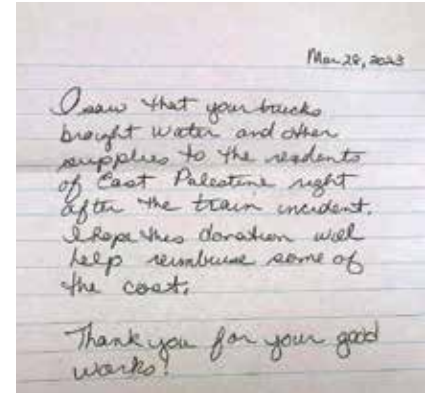 Mar 28, 2023
I saw that your trucks
brought water and other
supplies to the residents
of East Palestine right
after the train incident.
I hope this donation will
help reimburse some of
the cost.
Thank you for your good
works!